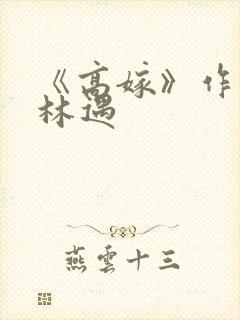 《高嫁》作
林遇
燕雲十三